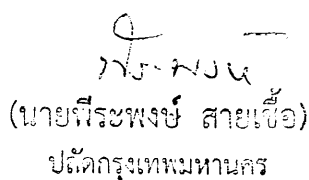 พีระพงษ์
(นายพีระพงษ์ สายเชื้อ)
ปลัดกรุงเทพมหานคร